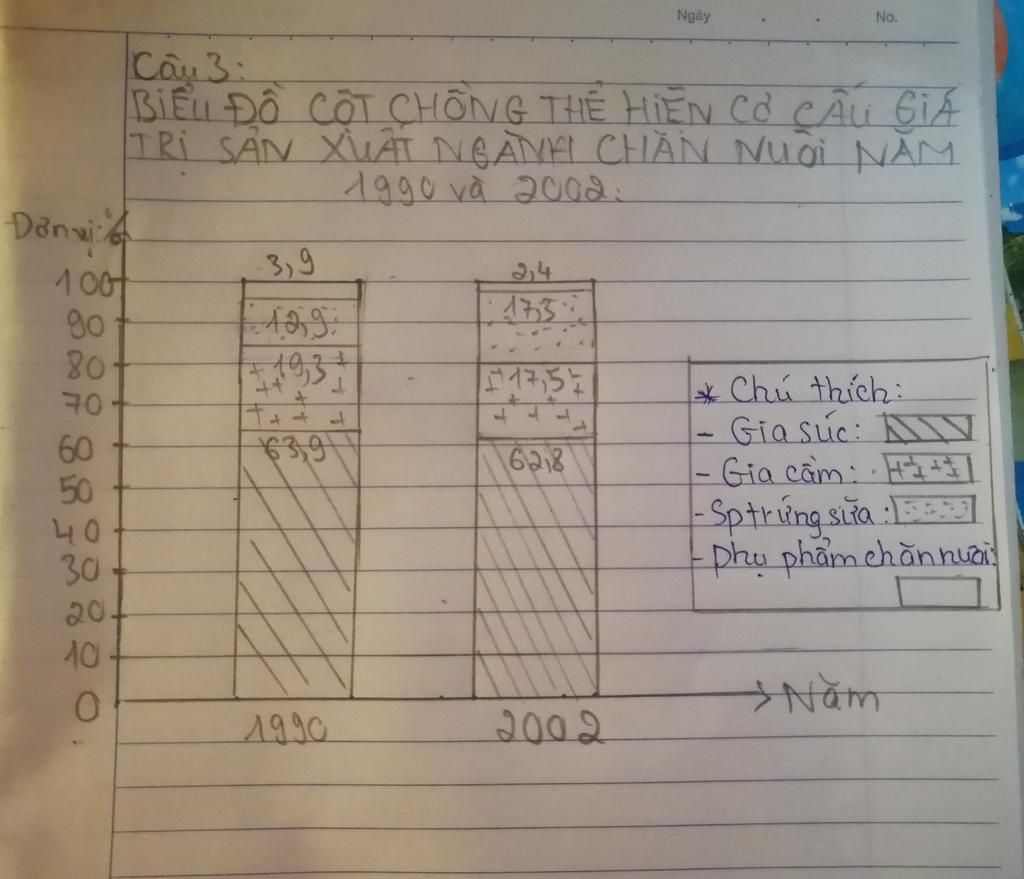 Ngày . . No.
Câu 3:
BIỂU ĐỒ CỘT CHỒNG THỂ HIỆN CƠ CẤU GIÁ
TRỊ SẢN XUẤT NGÀNH CHĂN NUÔI NĂM
1990 và 2002:
Đơn vị: %
3,9
2,4
100
12,9
17,3
90
80
19,3
17,5
70
60
63,9
62,8
50
40
30
20
10
0
1990
2002
Năm
* Chú thích:
- Gia súc:
- Gia cầm:
- Sp trứng sữa:
- Phụ phẩm chăn nuôi: